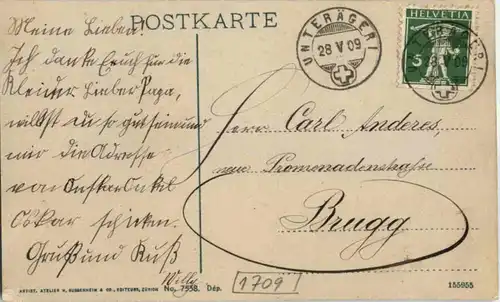 POSTKARTE
Meine Lieben!
Ich danke Euch für die
Kleider. Lieber Papa,
willst du so gut sein und
mir die Adresse
von Onkel
Oskar schicken.
Gruß und Kuß
Willy
UNTERÄGERI
28 V 09
HELVETIA
5
UNTERÄGERI
28 V 09
Herrn Carl Anderes,
neue Promenadenstrasse
Brugg
1709
ARTIST. ATELIER H. GUGGENHEIM & CO., EDITEURS, ZÜRICH No. 7558. Dép.
155055